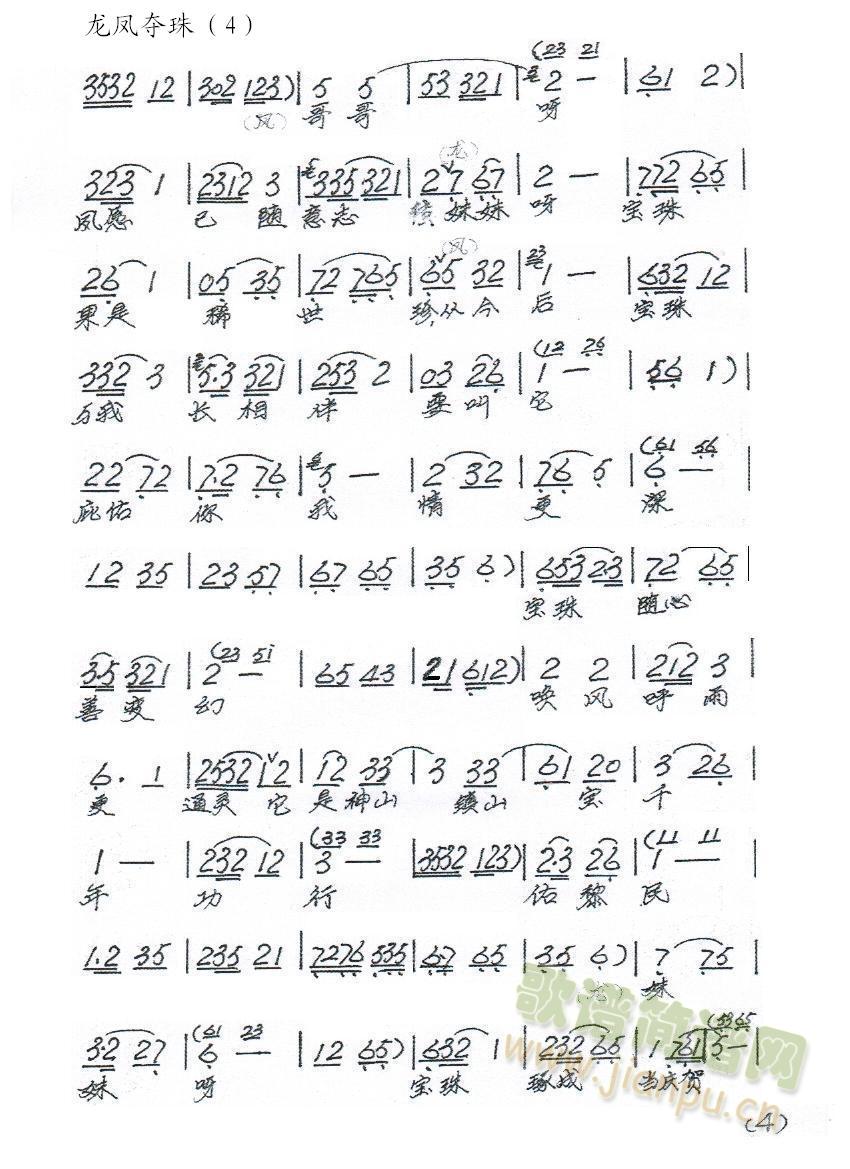 龙凤夺珠（4）
(23 21
3532 12 | 302 123) | 5 5 | 53 321 | 2 — | 61 2) |
(凤) 哥哥 呀
(龙)
323 1 | 2312 3 | 335 321 | 27 67 | 2 — | 772 65 |
凤愿 已随 意志 妹妹 呀 宝珠
(凤)
26 1 | 05 35 | 72 765 | 65 32 | 1 — | 632 12 |
果是 稀 世 珍,从今 后 宝珠
(12 26
332 3 | 5·3 321 | 253 2 | 03 26 | 1 — | 56 1) |
与我 长相 伴 要叫 它
(61 56
22 72 | 7·2 76 | 5 — | 2 32 | 76 5 | 6 — |
庇佑 你 我 情 更 深
12 35 | 23 57 | 67 65 | 35 6) | 653 2·3 | 72 65 |
宝珠 随心
(23 51
3·5 321 | 2 — | 65 43 | 21 612) | 2 2 | 212 3 |
善变 幻 唤风 呼雨
6· 1 | 2532 12 | 12 33 | 3 33 | 61 20 | 3 26 |
更 通灵它 是神山 镇山 宝 千
(33 33 (11 11
1 — | 232 12 | 3 — | 3532 123) | 2·3 26 | 1 — |
年 功 行 佑黎 民
1·2 35 | 235 21 | 7276 535 | 6·7 65 | 35 6) | 7 75 |
(龙) 妹
(61 23 (5365
3·2 27 | 6 — | 12 65) | 632 1 | 232 65 | 1 761 | 5 — |
妹 呀 宝珠 琢成 当庆贺
歌谱简谱网
www.jianpu.cn
(4)